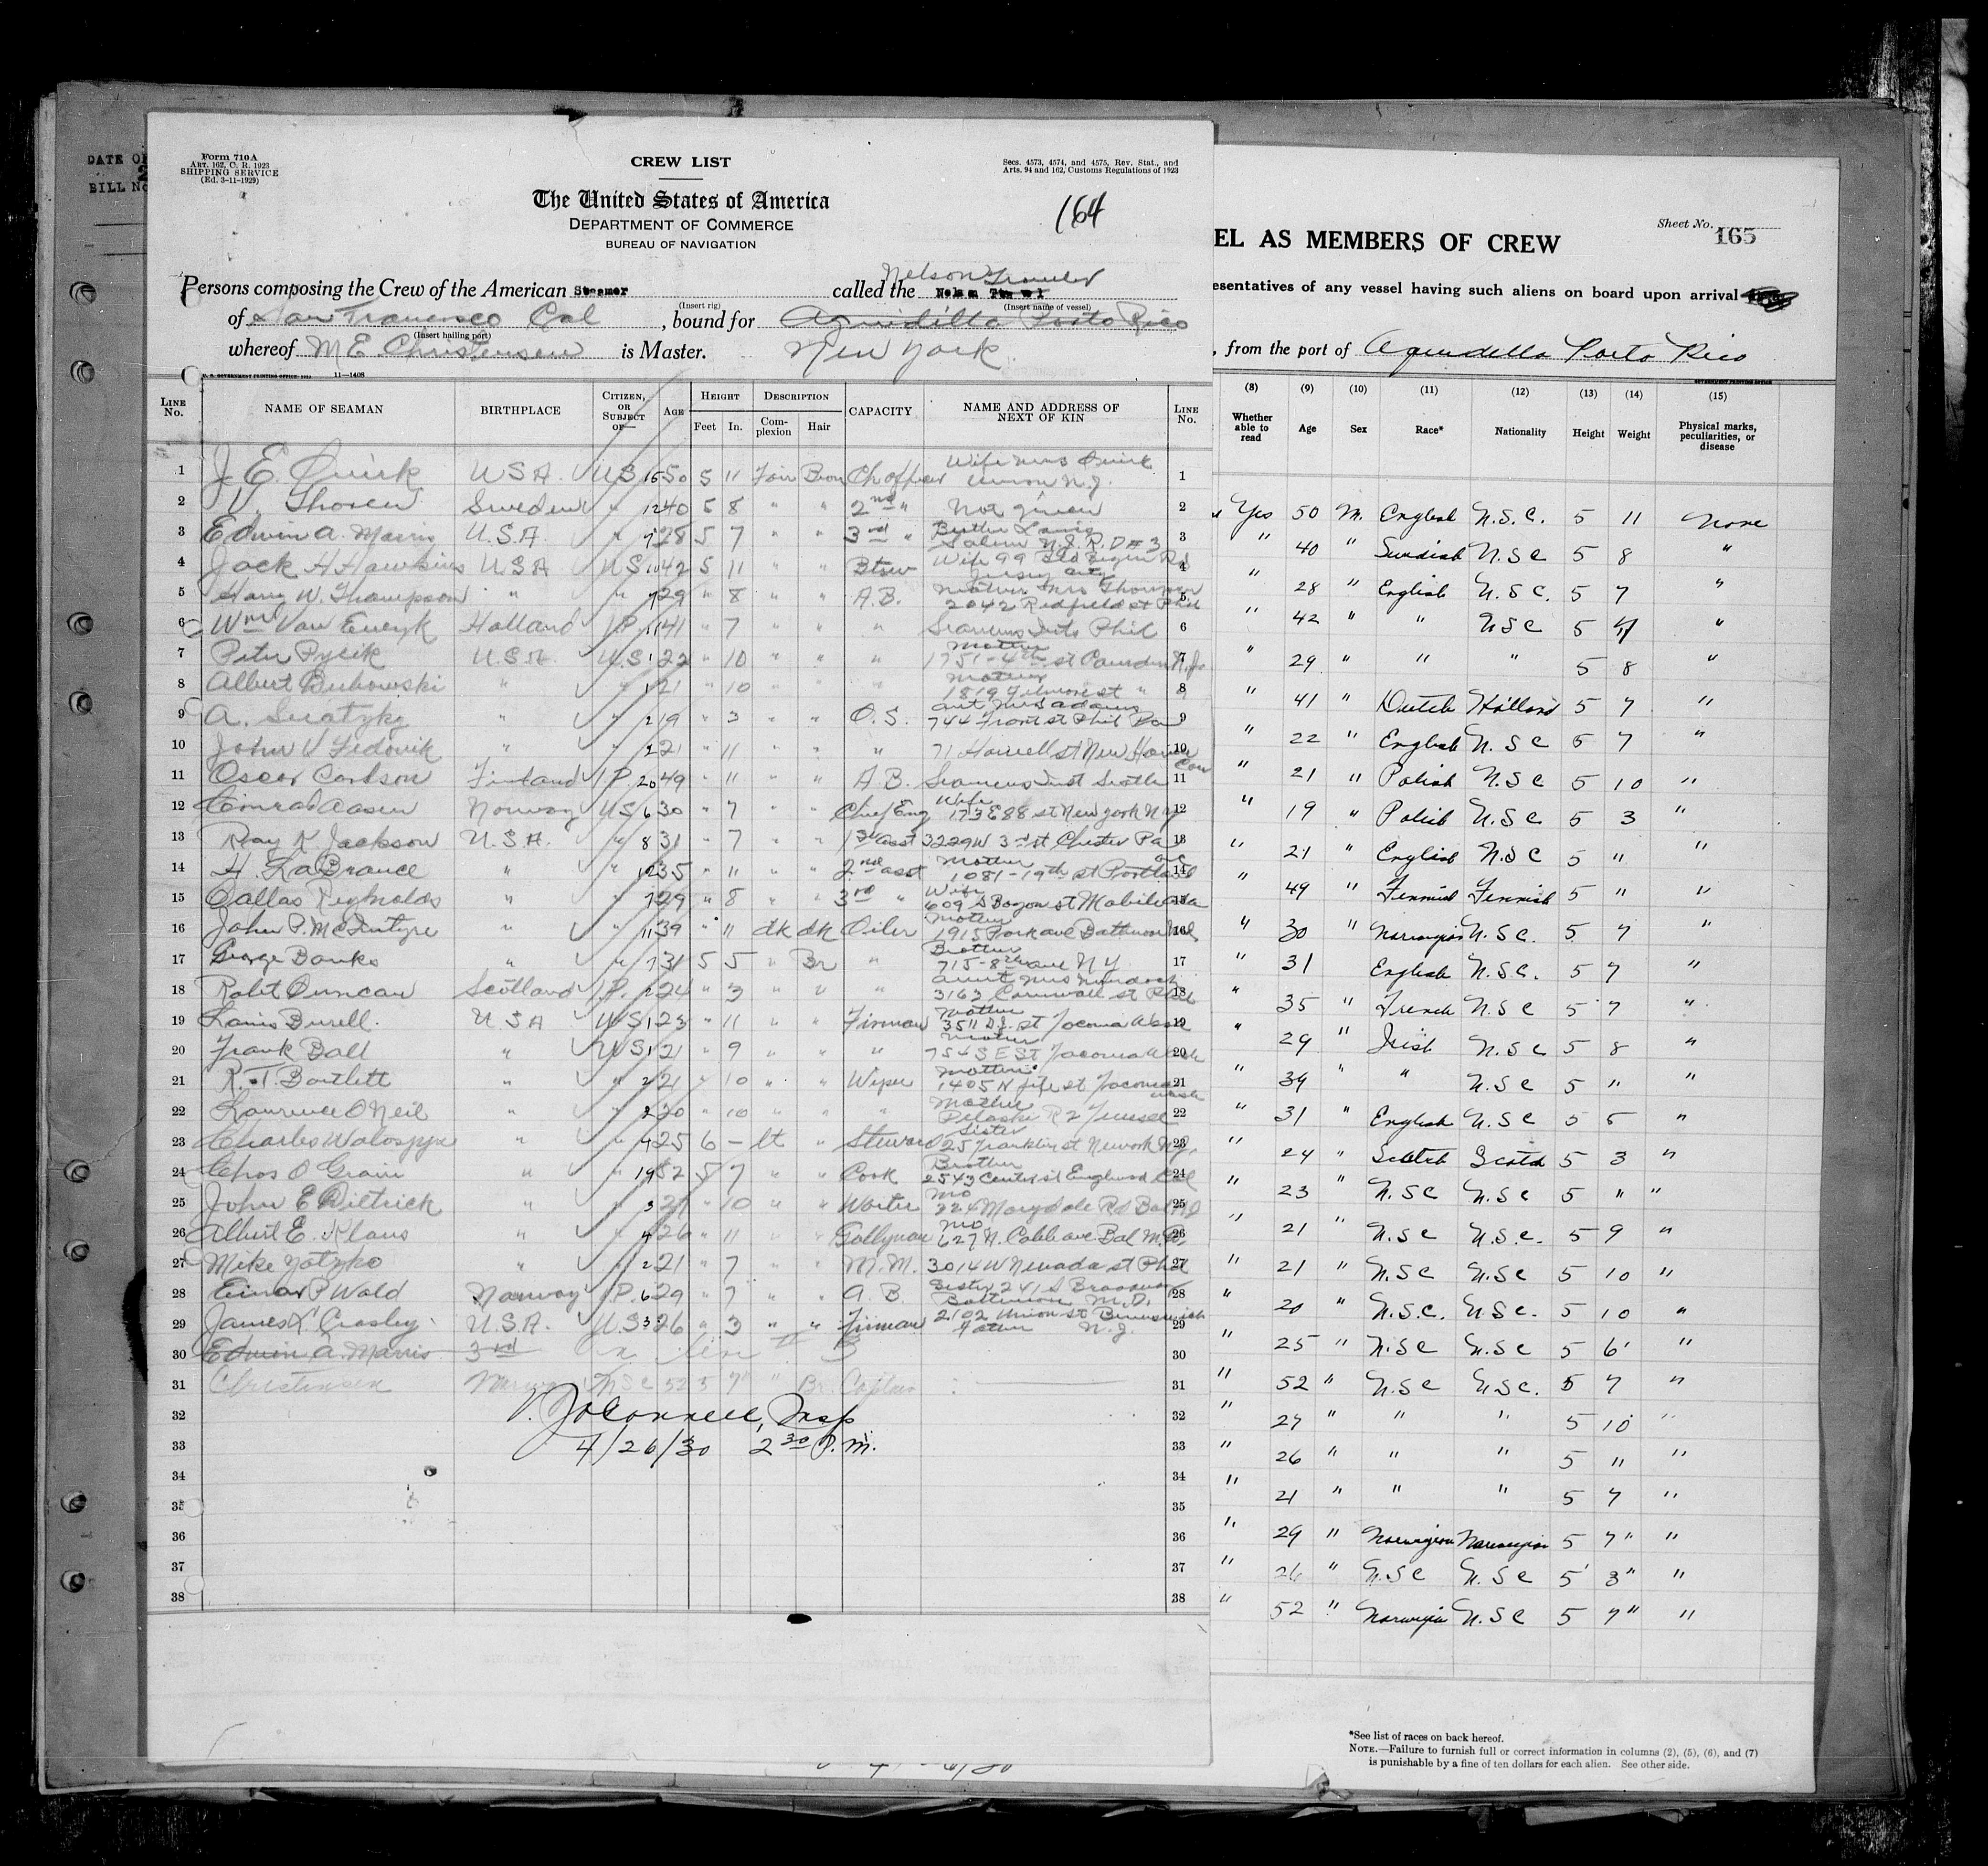 DATE OF
BILL No
Form 710A
ART. 162, C. R. 1923
SHIPPING SERVICE
(Ed. 3-11-1929)
CREW LIST
Secs. 4573, 4574, and 4575, Rev. Stat., and
Arts. 94 and 162, Customs Regulations of 1923
The United States of America
164
DEPARTMENT OF COMMERCE
BUREAU OF NAVIGATION
Persons composing the Crew of the American Steamer called the Nelson Traveler
(Insert rig) (Insert name of vessel)
of San Francisco Cal, bound for Aguidilla Porto Rico
(Insert hailing port)
whereof M E Christensen is Master. New York
U. S. GOVERNMENT PRINTING OFFICE 11—1408
LINE No. NAME OF SEAMAN BIRTHPLACE CITIZEN, OR SUBJECT OF— AGE HEIGHT Feet In. DESCRIPTION Complexion Hair CAPACITY NAME AND ADDRESS OF NEXT OF KIN LINE No.
1 J. E. Quirk U S A. U S 15 50 5 11 Fair Brow Ch officer Wife Mrs Quirk Union N. J. 1
2 V. Thoren Sweden " 12 40 5 8 " " 2nd " Not given 2
3 Edwin A. Marris U.S.A. " 7 28 5 7 " " 3rd " Salem N.J. R.D # 3 3
4 Jack H Hawkins U S A U S 10 42 5 11 " " Wife 99 Jersey City 4
5 Harry W. Thompson " " 7 29 " 8 " " A.B. Mother Mrs Thompson 2042 Redfield st Phil 5
6 Wm Van Holland 1P. 11 41 " 7 " " " Seamens Inst Phil 6
7 Peter Pycik U.S.A. U.S. 1 22 " 10 " " " Mother 1751-4th st Camden N.J. 7
8 Albert Bukowski " " 1 21 " 10 " " " Mother 1819 st " 8
9 A. " " 2 19 " 3 " " O.S. Mrs Adams 744 Front st Phil Pa 9
10 John V Fedovik " " 2 21 " 11 " " " 71 Howell st New Haven Con 10
11 Oscar Carlson Finland 1P. 20 49 " 11 " " A.B. Seamens Inst Seattle 11
12 Conrad Aasen Norway U S 6 30 " 7 " " Chief Eng Wife 173 E 88 st New York N Y 12
13 Ray K Jackson U.S.A. " 8 31 " 7 " " 1st asst 3229 W 3rd st Chester Pa 13
14 H. LaBrance " " 12 35 " 11 " " 2nd asst Mother 1081-19th st Portland 14
15 Dallas Reynolds " " 7 29 " 8 " " 3rd " Wife 609 S st Mobile Ala 15
16 John P. McIntyre " " 11 39 " 11 dk dk Oiler Mother 1915 Park ave Baltimore Md 16
17 George Banks " " 7 31 5 5 " Br " Brother 715-8th ave N Y 17
18 Robt Duncan Scotland 1P. 2 24 " 3 " " " Aunt Mrs Murdoch 3163 Cornwall st Phil 18
19 Louis Burell. U S A U S 1 23 " 11 " " Fireman Mother 3511 st Tacoma Wash 19
20 Frank Ball " U S 1 21 " 9 " " " Mother 754 S E St Tacoma Wash 20
21 R. T. Bartlett " " 2 21 " 10 " " Wiper Mother 1405 N fife st Tacoma Wash 21
22 Laurence O Neil " " 2 20 " 10 " " " Mother Pulaski R 2 22
23 Charles " " 7 25 6 - lt " Steward Sister 25 Franklin st Newark N.J. 23
24 Chas O Grain " " 19 52 5 7 " " Cook Brother 2543 Center st Englewood 24
25 John E Diltrick " " 3 27 " 10 " " Waiter Mo 324 Marydale Rd Bal Md 25
26 Albert E. Klaus " " 4 26 " 11 " " Gallyman Mo 627 N. ave Bal M.D. 26
27 Mike Yatzko " " 2 21 " 7 " " M.M. 3014 W Nevada st Phil 27
28 Einar P Wald Norway 1P. 6 29 " 7 " " A. B. Sister 241 S Broadway Baltimore M.D. 28
29 James K Crosley U.S.A. U.S 3 26 " 3 " " Fireman 2102 Union st Brunswick Father N. J. 29
30 Edwin A. Marris 3rd 30
31 Christensen Norway U S C 52 5 7" " Br. Captain 31
32 J. O'Connell, Insp 32
33 4/26/30 2 30 P. M. 33
34 34
35 35
36 36
37 37
38 38
Sheet No. 165
EL AS MEMBERS OF CREW
esentatives of any vessel having such aliens on board upon arrival
, from the port of Aguidella Porto Rico
(8) (9) (10) (11) (12) (13) (14) (15)
Whether able to read Age Sex Race* Nationality Height Weight Physical marks, peculiarities, or disease
Yes 50 M. English U.S.C. 5 11 None
" 40 " Swedish U.S C 5 8 "
" 28 " English U.S C. 5 7 "
" 42 " " U S C 5 11 "
" 29 " " " 5 8 "
" 41 " Dutch Holland 5 7 "
" 22 " English U.S C 5 7 "
" 21 " Polish U.S C 5 10 "
" 19 " Polish U.S C 5 3 "
" 21 " English U.S C 5 " "
" 49 " Finnish Finnish 5 " "
" 30 " Norwegian U.S C. 5 7 "
" 31 English U.S C. 5 7 "
" 35 " French U.S C 5 7 "
" 29 " Irish U.S C 5 8 "
" 39 " " U.S C 5 " "
" 31 " English U.S C 5 5 "
" 24 " Scotch Scotch 5 3 "
" 23 " U.S C U.S C 5 " "
" 21 " U.S C U.S.C. 5 9 "
" 21 " U.S C U.S C 5 10 "
" 20 " U.S.C. U.S C. 5 10 "
" 25 " U.S C U.S C 5 6' "
" 52 " U.S C U.S C. 5 7 "
" 27 " " " 5 10 "
" 26 " " " 5 11 "
" 21 " " " 5 7 "
" 29 " Norwegian Norwegian 5 7" "
" 26 " U.S C U.S C 5' 3" "
" 52 " Norwegian U.S C 5 7" "
*See list of races on back hereof.
NOTE.—Failure to furnish full or correct information in columns (2), (5), (6), and (7)
is punishable by a fine of ten dollars for each alien. See other side.